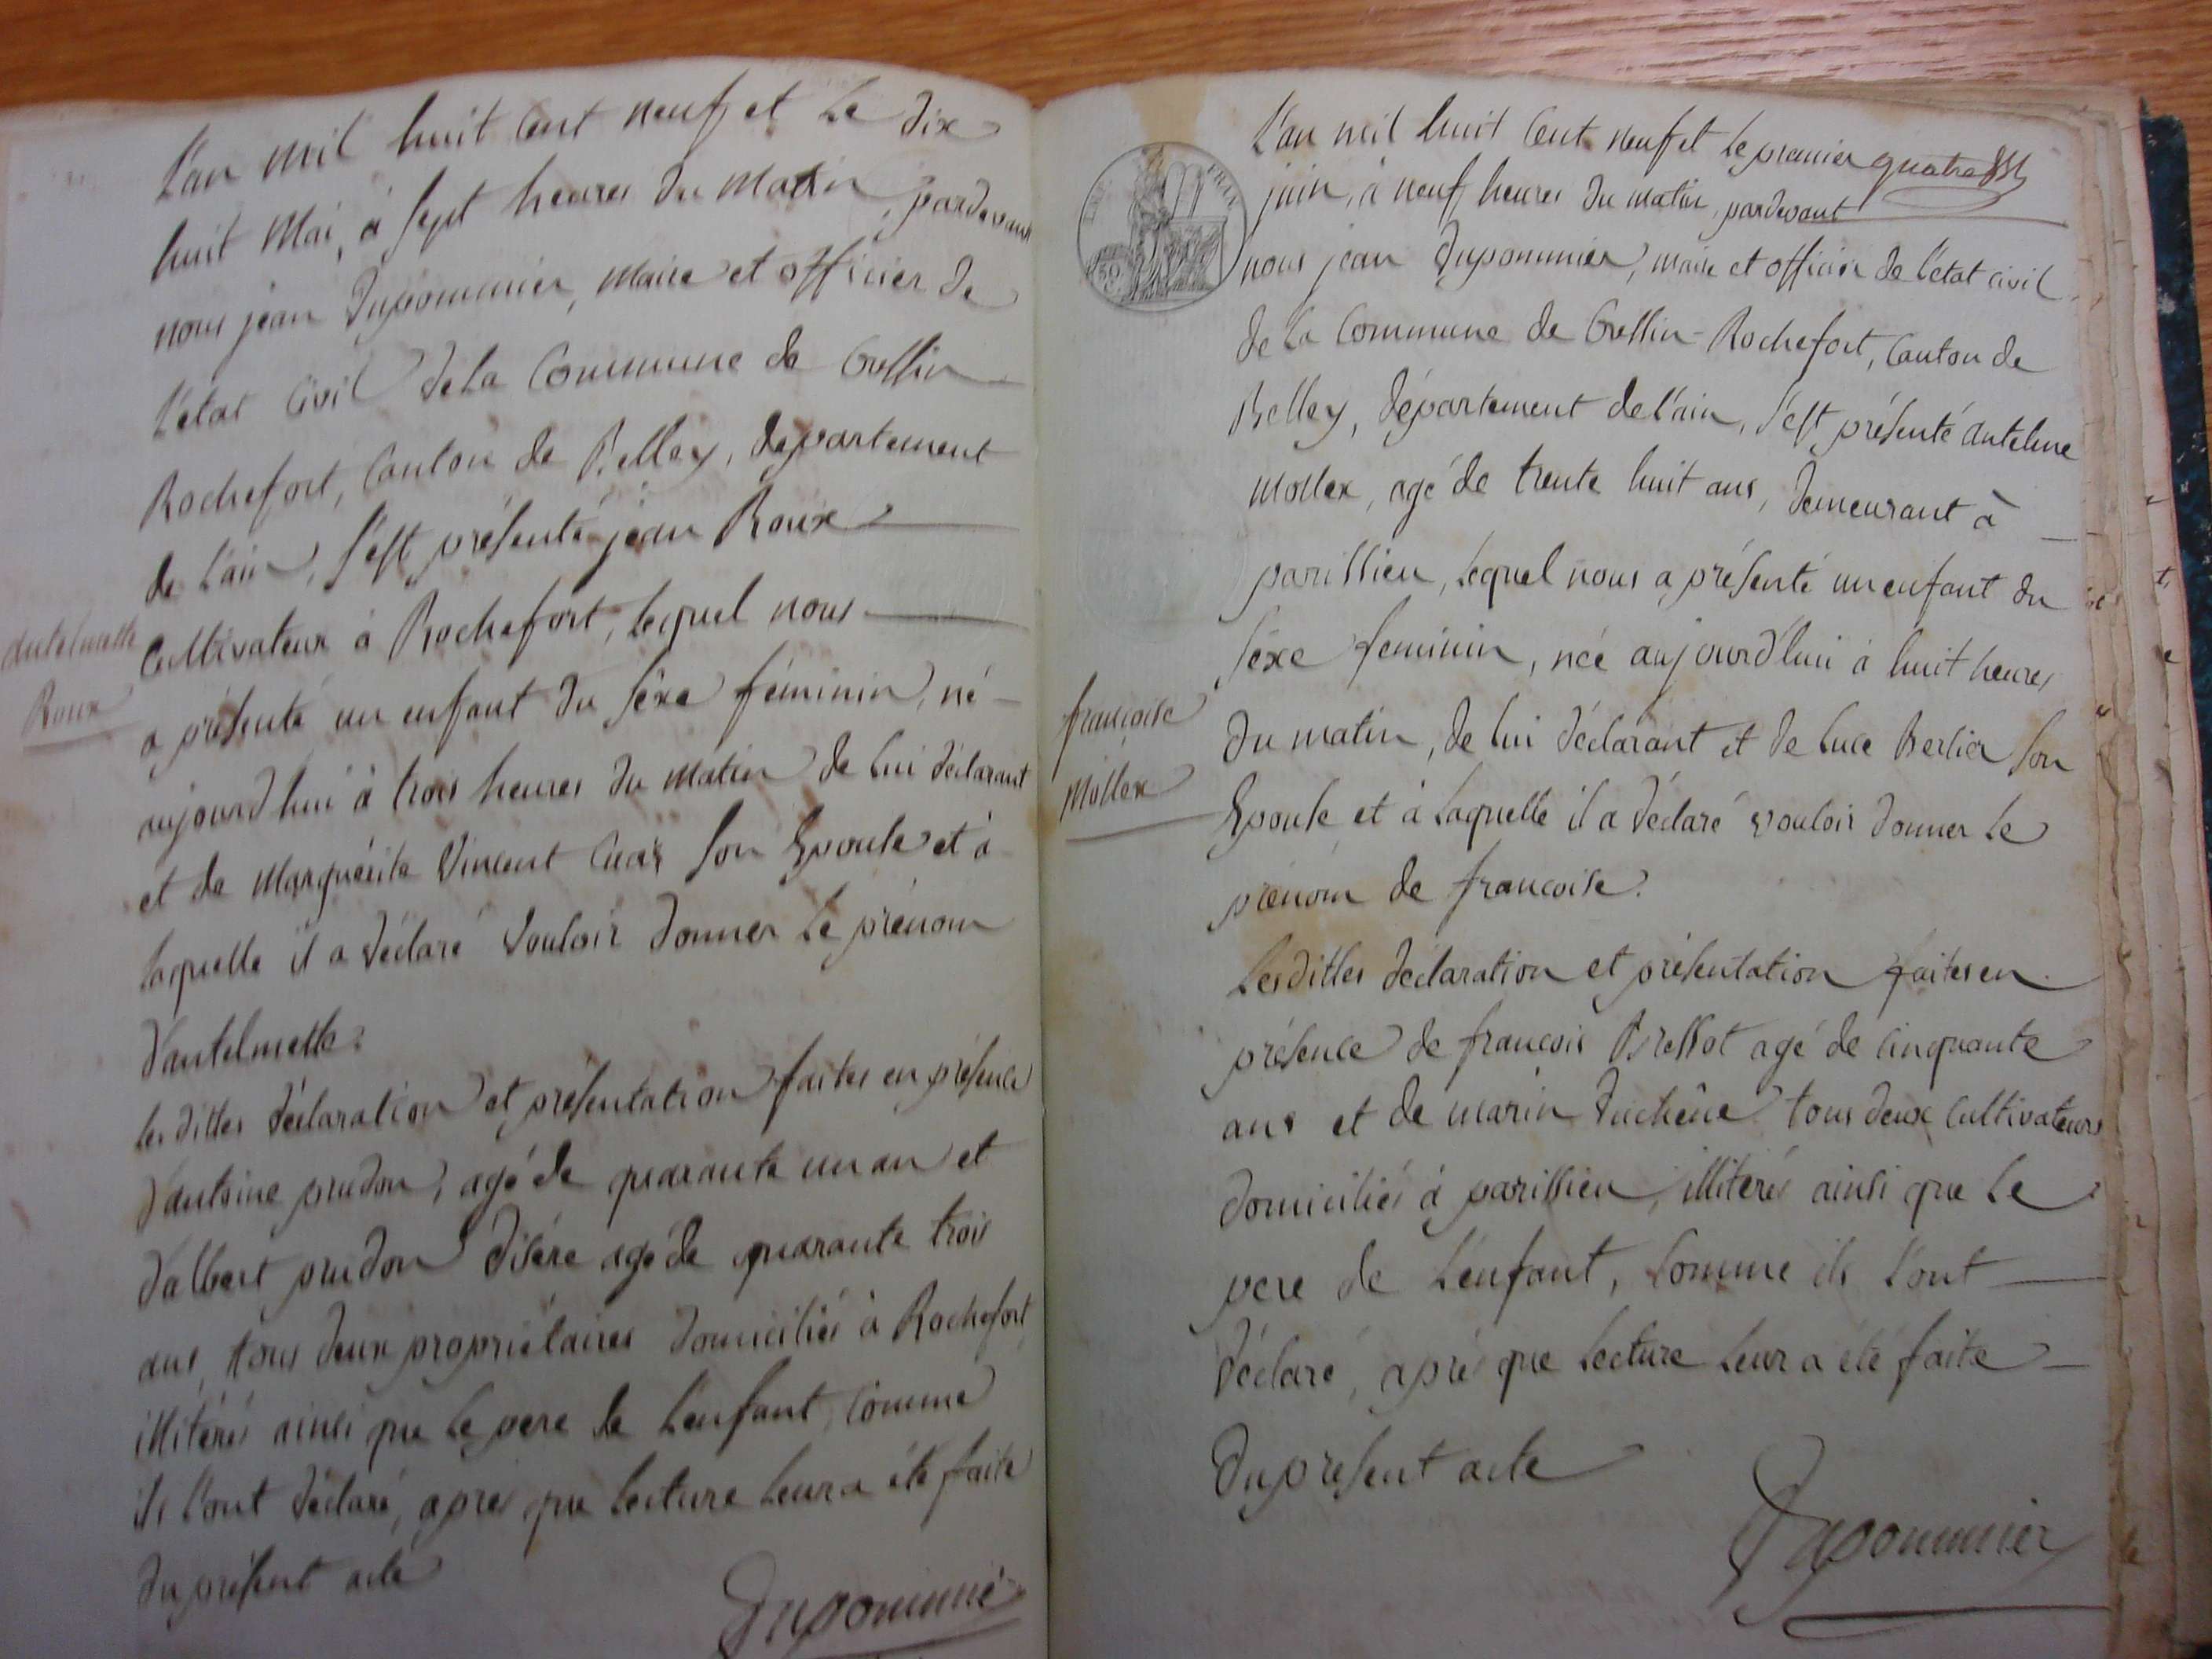 L'an mil huit cent neuf et le dix
huit mai, à sept heures du matin, pardevant
nous jean Dupommier, maire et officier de
l'etat civil de la Commune de Cressin
Rochefort, Canton de Belley, département
de l'ain, s'est présenté jean Roux
Cultivateur à Rochefort, lequel nous
a présenté un enfant du séxe féminin, né
aujourd'hui à trois heures du matin de lui déclarant
et de Marguérite Vincent son Epouse et à
laquelle il a déclaré vouloir donner le prénom
d'antelmette.
les dittes déclaration et présentation faites en présence
d'antoine prudon, agé de quarante un an et
d'albert prudon agé de quarante trois
ans, tous deux propriétaires domiciliés à Rochefort
illitérés ainsi que le pere de l'enfant, comme
ils l'ont déclaré, après que lecture leur a été faite
du présent acte
Dupommier
antelmette
Roux
L'an mil huit Cent neuf et le premier
juin, à neuf heures du matin, pardevant
nous jean Dupommier, maire et officier de l'état civil
de la Commune de Cressin-Rochefort, Canton de
Belley, département de l'ain, s'est présenté antelme
Mollex, agé de trente huit ans, demeurant à
parissieu, lequel nous a présenté un enfant du
séxe feminin, née aujourd'hui à huit heures
du matin, de lui déclarant et de luce Berlier son
Epouse et à laquelle il a déclaré vouloir donner le
prénom de francoise.
Les dittes déclaration et présentation faites en
présence de francois Bressot agé de cinquante
ans et de marin Duchêne tous deux Cultivateurs
domiciliés à parissieu, illitérés ainsi que le
pere de l'enfant, comme ils l'ont
déclaré, après que lecture leur a été faite
du présent acte
Dupommier
françoise
Mollex
50